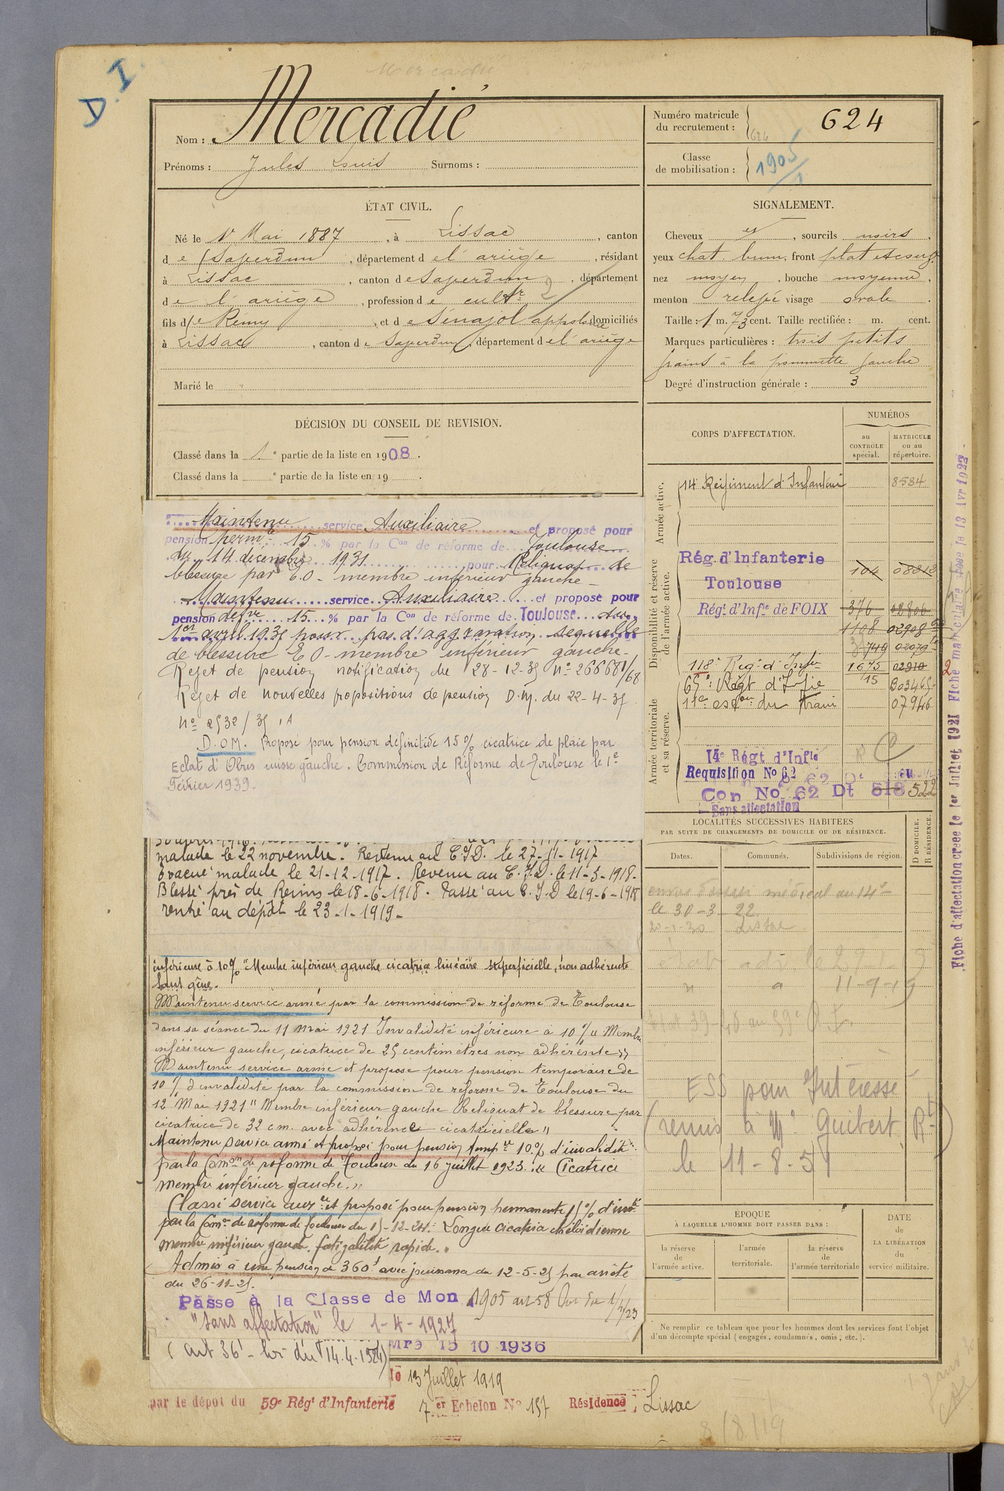 D. I.
Nom : Mercadié
Prénoms : Jules Louis Surnoms :
Numéro matricule du recrutement : 624
Classe de mobilisation : 1905
ÉTAT CIVIL.
Né le 1er Mai 1887, à Lissac, canton
de Saverdun, département de l'ariège, résidant
à Lissac, canton de Saverdun, département
de l'ariège, profession de cultr
fils de Rémy et de Sénajol appolonie domiciliés
à Lissac, canton de Saverdun, département de l'ariège
Marié le
SIGNALEMENT.
Cheveux , sourcils noirs,
yeux chat. brun, front plat et court
nez moyen, bouche moyenne,
menton relevé visage ovale
Taille : 1 m. 73 cent. Taille rectifiée : m. cent.
Marques particulières : trois petits
grains à la pommette gauche
Degré d'instruction générale : 3
DÉCISION DU CONSEIL DE REVISION.
Classé dans la 1e partie de la liste en 1908.
Classé dans la e partie de la liste en 19 .
Maintenu service Auxiliaire et proposé pour
pension perm. 15 % par la Con de réforme de Toulouse
du 14 décembre 1931 pour Reliquat de
blessure par E.O - membre inférieur gauche -
Maintenu service Auxiliaire et proposé pour
pension 15 % par la Con de réforme de Toulouse du
1er avril 1935 pour pas d'aggravation séquelle
de blessure E O - membre inférieur gauche -
Rejet de pension notification du 28-12-35
Rejet de nouvelles propositions de pension D.M. du 22-4-35
No 2532/35
D.O.M. Proposé pour pension définitive 15% cicatrice de plaie par
Eclat d'Obus cuisse gauche. Commission de Réforme de Toulouse le 1e
Février 1939.
malade le 22 novembre. Revenu au C.I.D. le 27-11-1917
Evacué malade le 21-12-1917. Revenu au C.I.D. le 11-3-1918.
Blessé près de Reims le 18-6-1918. Passé au C.I.D le 19-6-1918
rentré au dépôt le 23-1-1919-
inférieure à 10% "Membre inférieur gauche cicatrice linéaire superficielle, non adhérente
sans gêne.
Maintenu service armé par la commission de réforme de Toulouse
dans sa séance du 11 mai 1921 Invalidité inférieure à 10% "Membre
inférieur gauche, cicatrice de 25 centimètres non adhérente"
Maintenu service armé et proposé pour pension temporaire de
10% d'invalidité par la commission de réforme de Toulouse du
12 Mai 1921 "Membre inférieur gauche Reliquat de blessure par
cicatrice de 32 cm. avec adhérence cicatricielle"
Maintenu service armé et proposé pour pension tempre 10% d'invalidité
par la Comon de réforme de Toulouse du 16 juillet 1923. "Cicatrice
membre inférieur gauche."
Classé service auxre et proposé pour pension permanente 15% d'invté
par la Comon de réforme de Toulouse du 15-12-24. Longue cicatrice chéloïdienne
membre inférieur gauche, fatigabilité rapide."
Admis à une pension de 360f avec jouissance du 12-5-25 par arrêté
du 26-11-25.
Passé à la Classe de Mon 1905 art 58
"Sans affectation" le 1-4-1927
(art 36 - loi du 14.4.1924)
15 10 1936
le 13 Juillet 1919
par le dépot du 59e Régt d'Infanterie
7er Echelon No 157 Résidence : Lissac
8/8/19
CORPS D'AFFECTATION.
NUMÉROS
au CONTRÔLE spécial.
MATRICULE ou au répertoire.
Armée active.
14 Régiment d'Infanterie 8534
Disponibilité et réserve de l'armée active.
Rég. d'Infanterie Toulouse 104
Régt. d'Infie de FOIX 376
1108 02908
118e Régt d'Infie 1675 02910
Armée territoriale et sa réserve.
65e Régt d'Infie 15 B03465
17e escon du Train 07946
14e Régt d'Infie
Requisition No 62
Con No 62 Dt 522
Sans affectation
LOCALITÉS SUCCESSIVES HABITÉES
PAR SUITE DE CHANGEMENTS DE DOMICILE OU DE RÉSIDENCE.
Dates. Communes. Subdivisions de région. D DOMICILE. R RÉSIDENCE.
envoi dossier médical au 14e
le 30-3-22
Lissac
11-9-19
ESS pour Intéressé
(remis à Mr Guibert, Rt)
le 11-8-51
ÉPOQUE
À LAQUELLE L'HOMME DOIT PASSER DANS :
DATE de LA LIBÉRATION du service militaire.
la réserve de l'armée active.
l'armée territoriale.
la réserve de l'armée territoriale
Ne remplir ce tableau que pour les hommes dont les services font l'objet
d'un décompte spécial (engagés, condamnés, omis, etc.).
Fiche d'affectation créée le 1er Juillet 1921 Fiche matriculaire le 13 Avr 1922